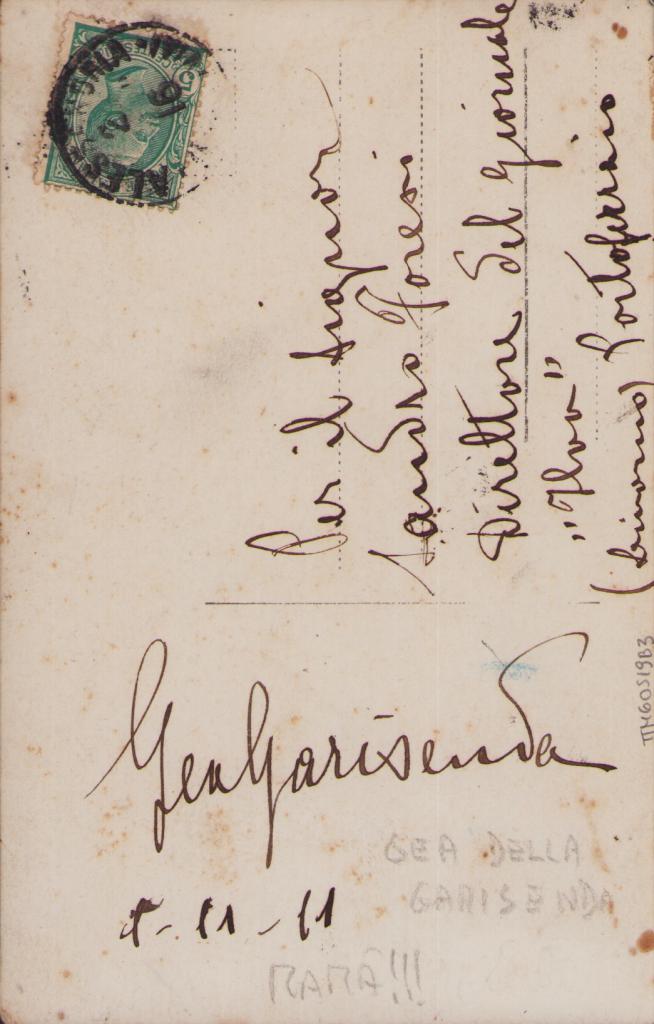 Per il Signor
Sandro Foresi
Direttore del giornale
"Ilva"
(Livorno) Portoferraio
Gea Garisenda
11-11
GEA DELLA
GARISENDA
RARA!!!